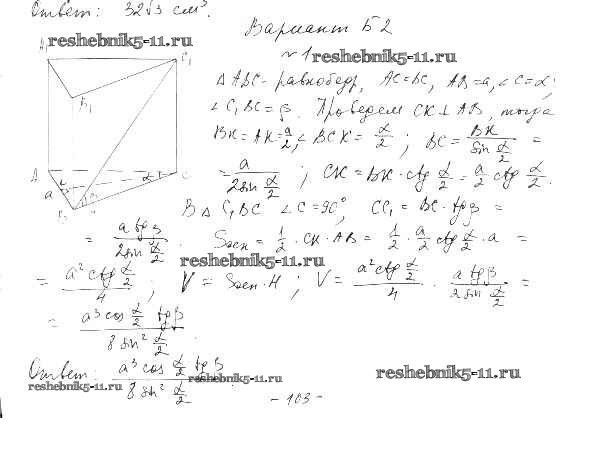 Ответ: 32√3 см³.
Вариант Б2
reshebnik5-11.ru
№1 reshebnik5-11.ru
A₁ C₁
B₁
A α C
a
B β
Δ ABC - равнобедр, AC=BC, AB=a, ∠C=α,
∠C₁BC=β. Проведем CK⊥AB, тогда
BK=AK=a/2, ∠BCK=α/2; BC=BK/sin α/2 =
= a/2sin α/2; CK=BK·ctg α/2 = a/2 ctg α/2.
В Δ C₁BC ∠C=90°, CC₁=BC·tgβ =
= a tgβ/2sin α/2. Sосн = 1/2·CK·AB = 1/2·a/2 ctg α/2·a =
reshebnik5-11.ru
= a² ctg α/2 /4; V = Sосн·H; V = a² ctg α/2 /4 · a tgβ/2 sin α/2 =
= a³ cos α/2 tgβ / 8 sin² α/2
Ответ: a³ cos α/2 tgβ / 8 sin² α/2.
reshebnik5-11.ru reshebnik5-11.ru reshebnik5-11.ru
- 103 -